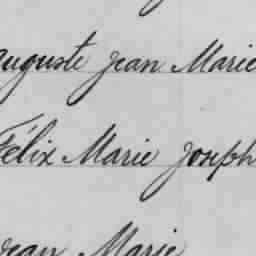 Auguste Jean Marie
Félix Marie Joseph
Jean Marie